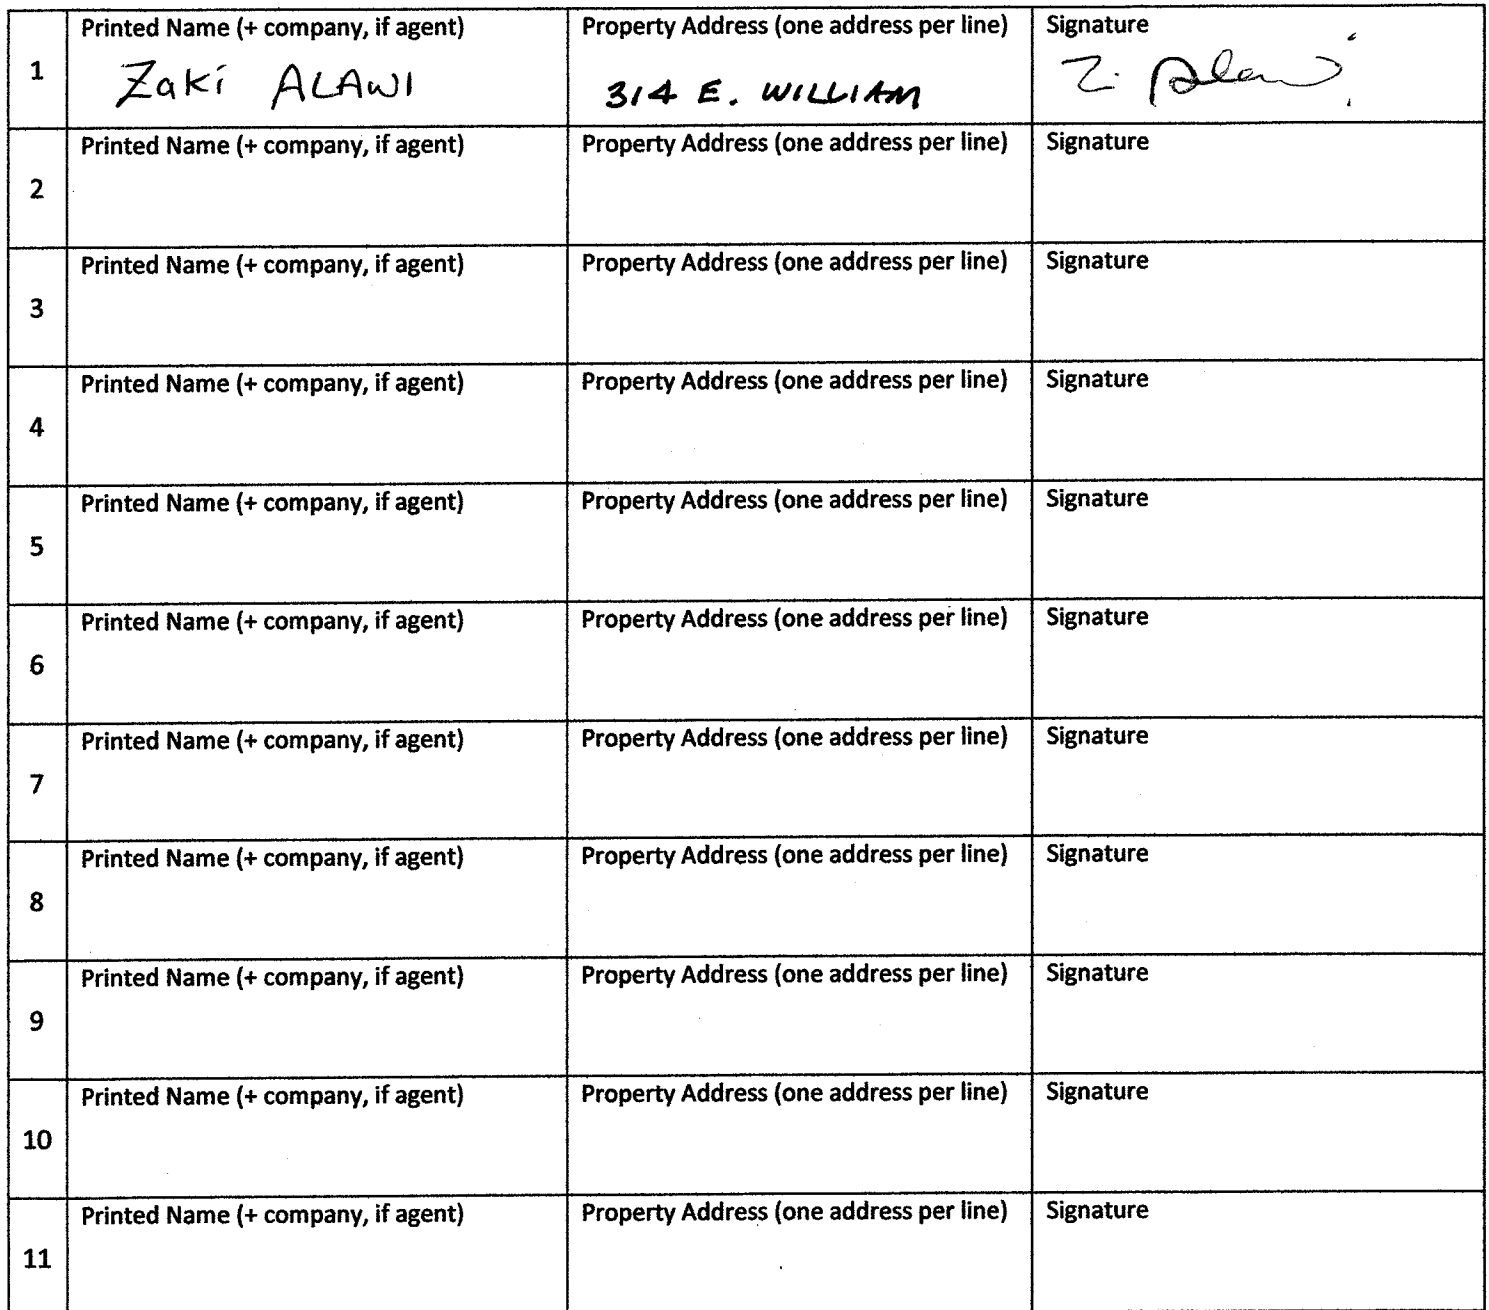 Printed Name (+ company, if agent) Property Address (one address per line) Signature
1 Zaki ALAWI 314 E. WILLIAM Z. Alawi
Printed Name (+ company, if agent) Property Address (one address per line) Signature
2
Printed Name (+ company, if agent) Property Address (one address per line) Signature
3
Printed Name (+ company, if agent) Property Address (one address per line) Signature
4
Printed Name (+ company, if agent) Property Address (one address per line) Signature
5
Printed Name (+ company, if agent) Property Address (one address per line) Signature
6
Printed Name (+ company, if agent) Property Address (one address per line) Signature
7
Printed Name (+ company, if agent) Property Address (one address per line) Signature
8
Printed Name (+ company, if agent) Property Address (one address per line) Signature
9
Printed Name (+ company, if agent) Property Address (one address per line) Signature
10
Printed Name (+ company, if agent) Property Address (one address per line) Signature
11